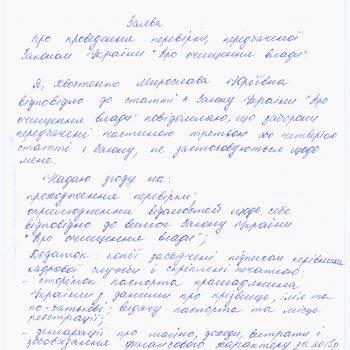 Заява
про проведення перевірки, передбаченої
Законом України "Про очищення влади"
Я, Хвостенко Мирослава Юріївна
відповідно до статті 4 Закону України "Про
очищення влади" повідомляю, що заборони
передбачені частиною третьою або четвертою
статті 1 Закону, не застосовуються щодо
мене.
Надаю згоду на:
проходження перевірки;
оприлюднення відомостей щодо себе
відповідно до вимог Закону України
"Про очищення влади";
Додаток: копії засвідчені підписом керівника
кадрової служби і скріплені печаткою:
- сторінок паспорта громадянина
України з даними про прізвище, ім'я та
по-батькові; видачу паспорта та місце
реєстрації;
- декларації про майно, доходи, витрати і
зобов'язання фінансового характеру за 2015р